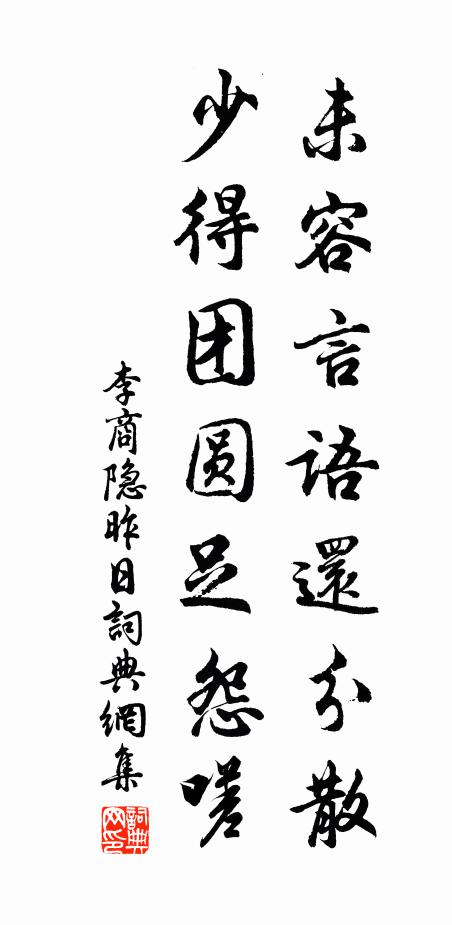 未容言語還分散
少得团圆足怨嗟
李商隐昨日詞典網集
詞典
网印